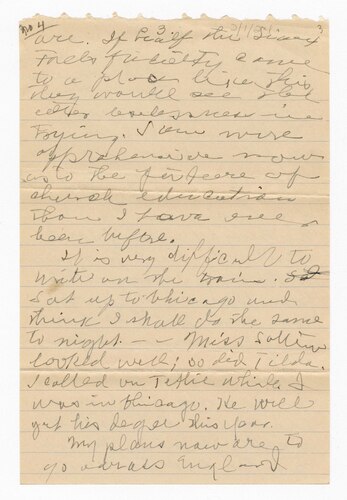 no 4 3
are. If half the Sioux
Falls faculty came
to a place like this
they would see
in
trying. I am more
apprehensive now
as to the future of
church education
than I have ever
been before.
It is very difficult to
write on the train.
Sat up to Chicago and
think I shall do the same
to night -- Miss
looked well; so did Tilda.
I called on while I
was in Chicago. He will
get his degree this year.
My plans now are to
go across England